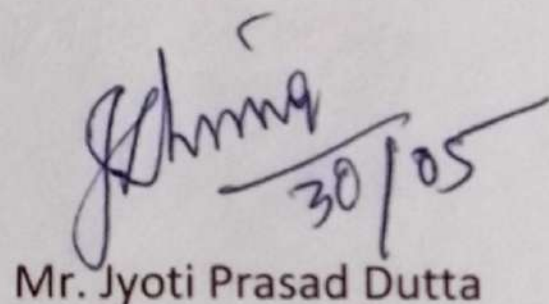 30/05
Mr. Jyoti Prasad Dutta